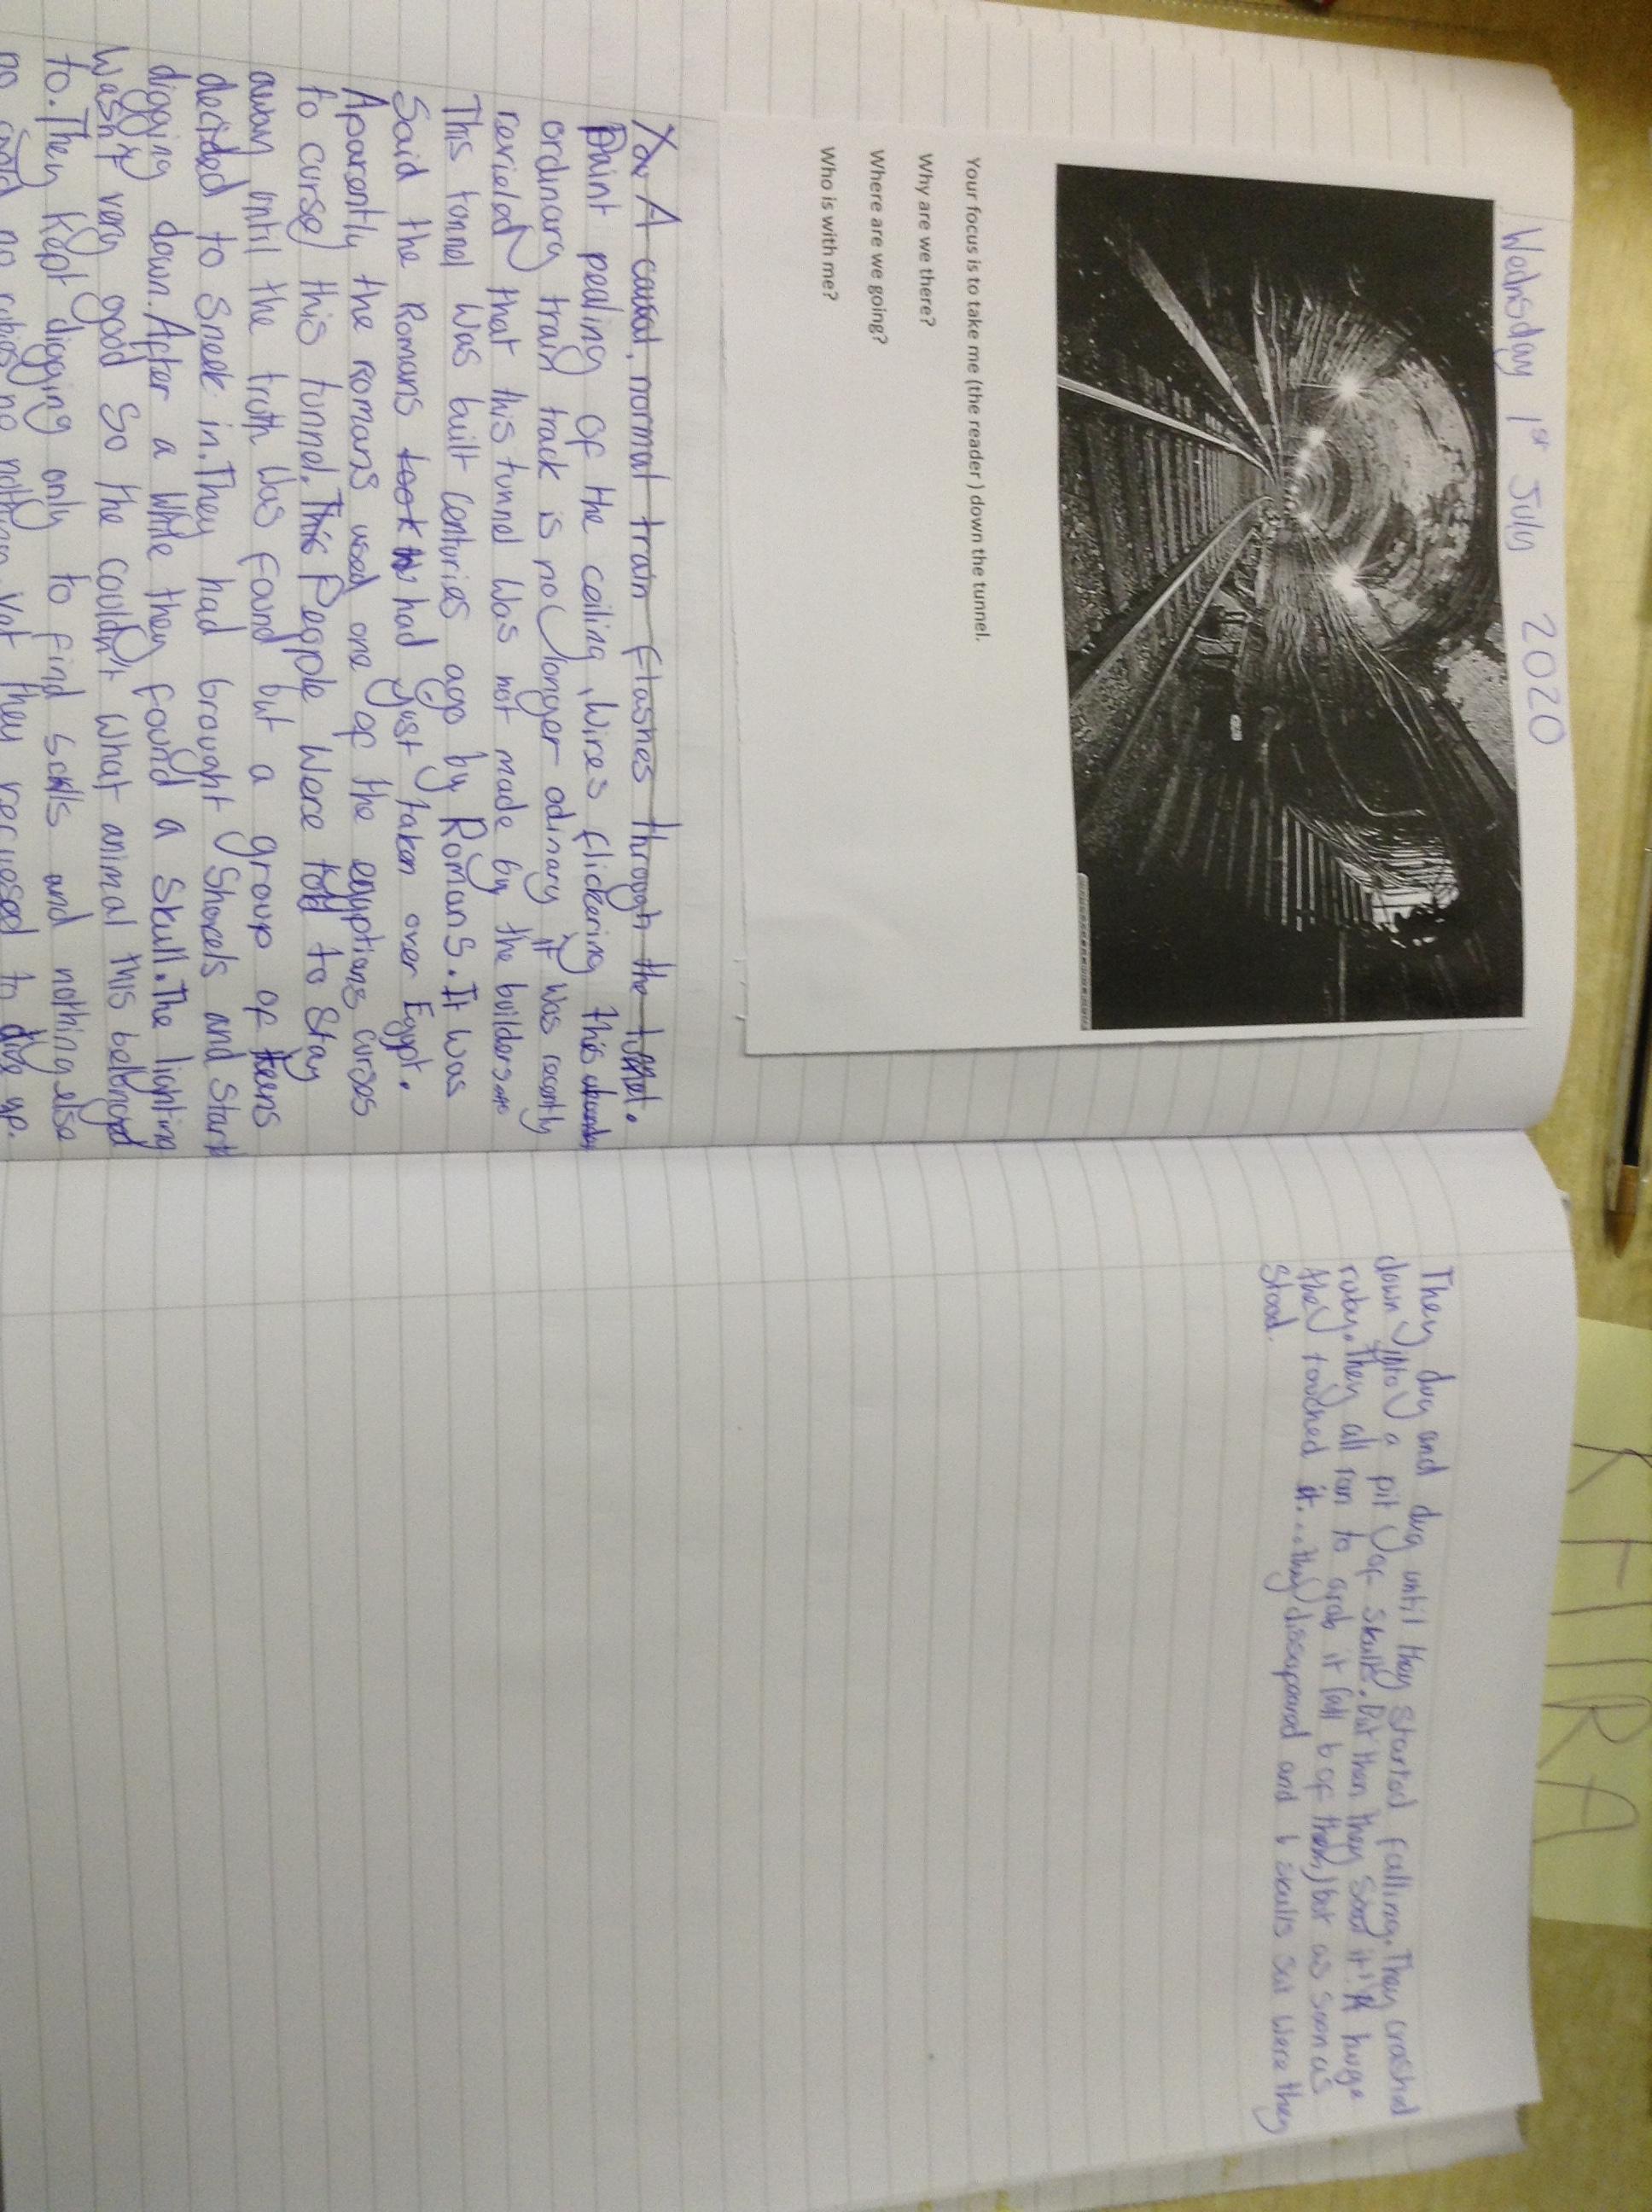 Wednsday 1st July 2020
Your focus is to take me (the reader) down the tunnel.
Why are we there?
Where are we going?
Who is with me?
A normal train flashes through the
Paint pealing of the ceiling, Wires flickering this
ordinary train track is no longer odinary it was
that this tunnel was not made by the builders
This tonnel was built centuries ago by Romans. It was
Said the Romans took had just taken over Egypt.
Aparently the romans used one of the egyptians curses
to curse this tunnel. This People were told to stay
away until the truth was found but a group of teens
decided to Sneek in. They had brought Shovels and Start
digging down. After a while they found a Skull. The lighting
wasn't very good So the couldn't what animal this belonged
to. They kept digging only to find and nothing else
no no rubies no Yet they to give up.
They dug and dug until they started falling. They crashed
down into a pit of skulls. But then they it! A huge
ruby. They all ran to grab it (all 6 of them) but as soon as
they touched it... they and 6 skulls sat were they
Stood.